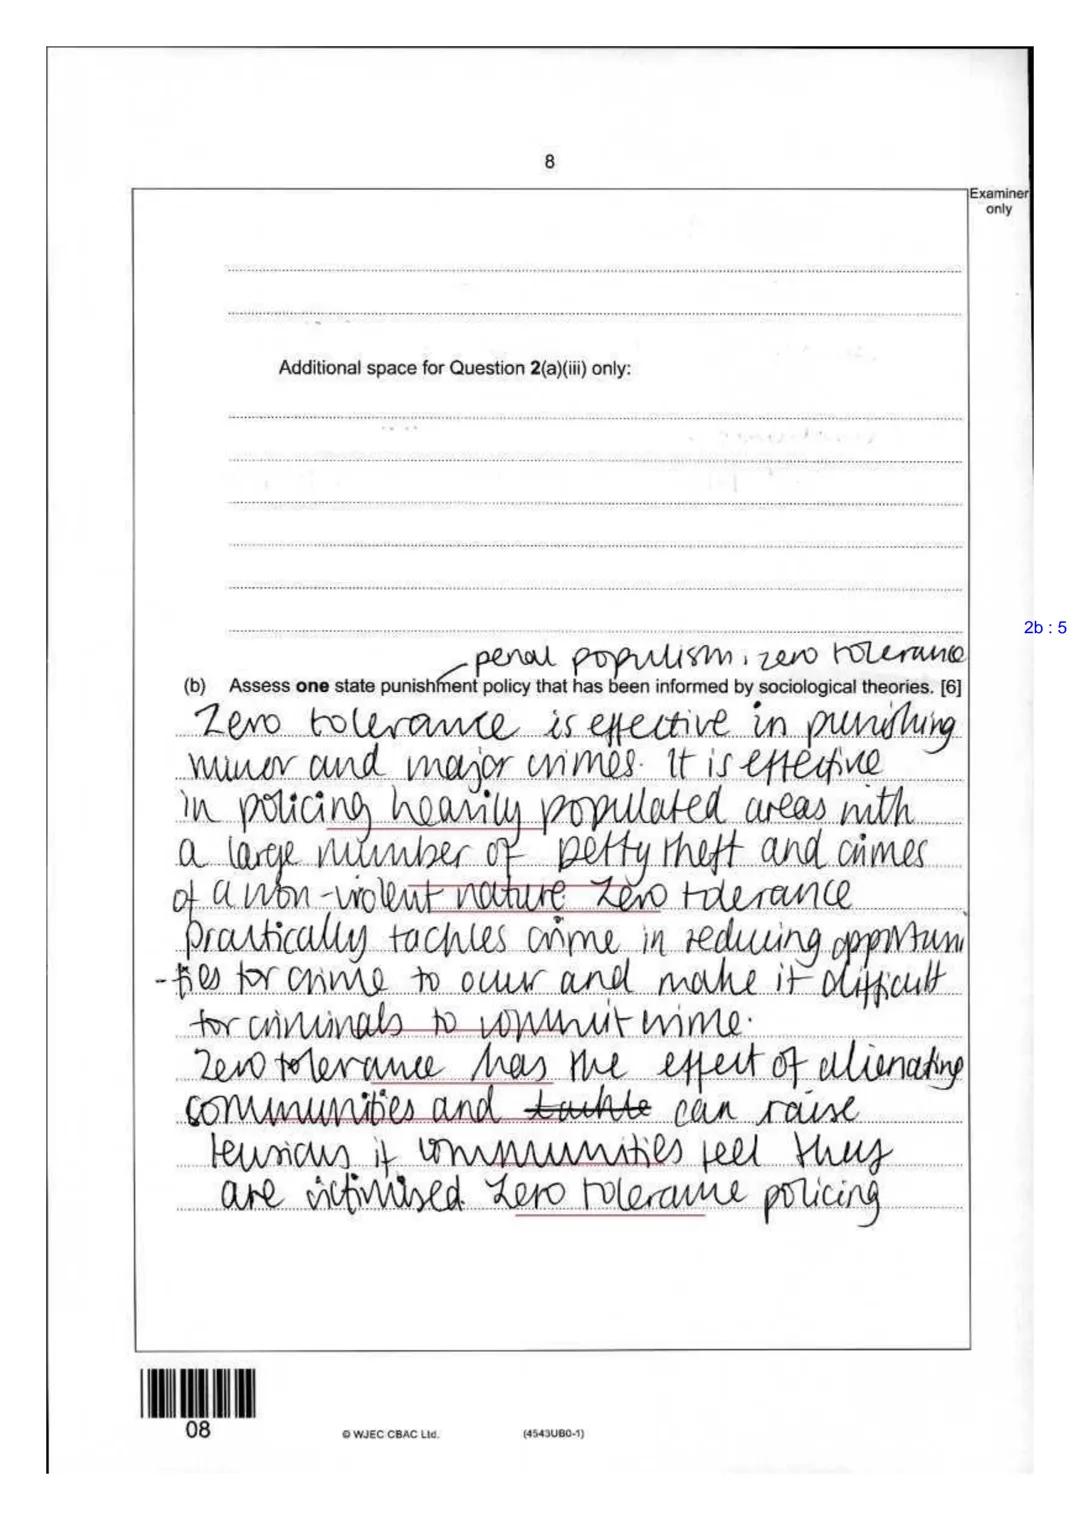 8
Examiner
only
Additional space for Question 2(a)(iii) only:
2b : 5
penal populism, zero tolerance
(b) Assess one state punishment policy that has been informed by sociological theories. [6]
Zero tolerance is effective in punishing
minor and major crimes. It is effective
in policing heavily populated areas with
a large number of petty theft and crimes
of a non-violent nature Zero tolerance
practically tackles crime in reducing opportuni
-ties for crime to occur and make it difficult
for criminals to commit crime.
Zero tolerance has the effect of alienating
communities and tackle can raise
tensions if communities feel they
are victimised. Zero tolerance policing
08
© WJEC CBAC Ltd.
(4543UB0-1)